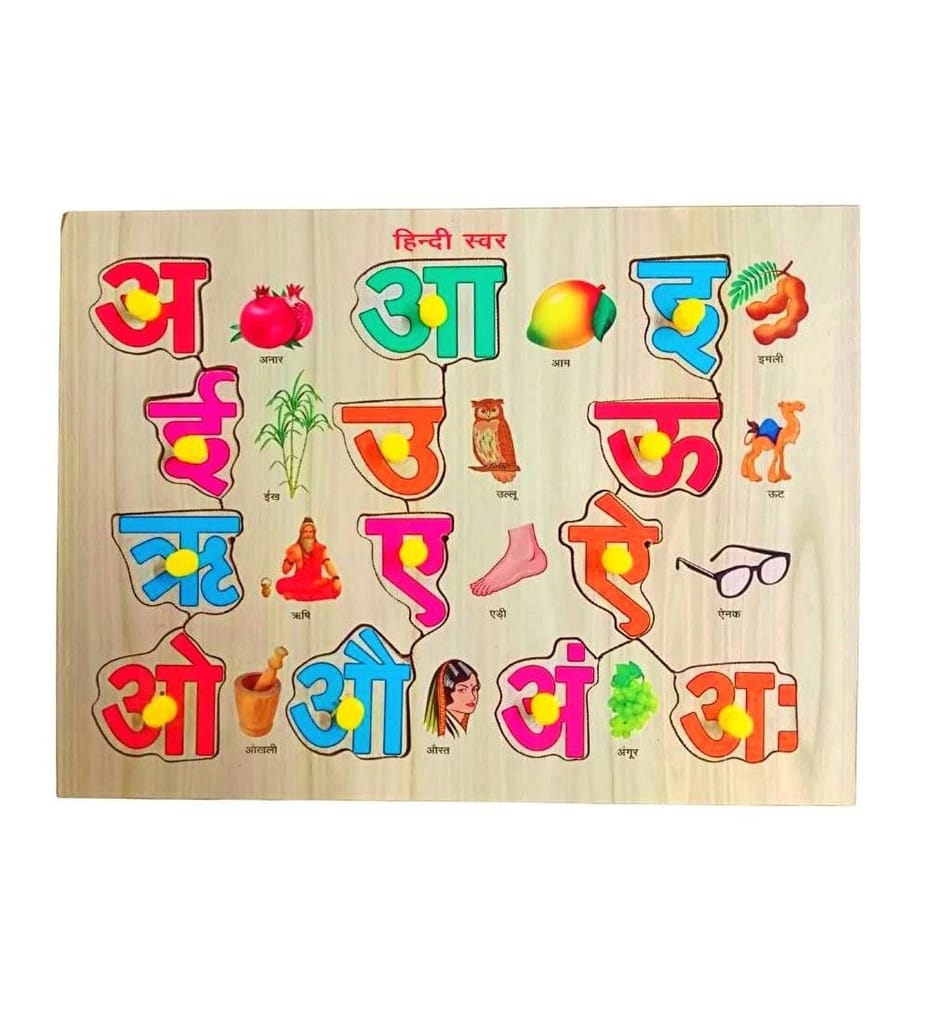 हिन्दी स्वर
अ आ इ
अनार आम इमली
ई उ ऊ
ईख उल्लू ऊट
ऋ ए ऐ
ऋषि एड़ी ऐनक
ओ औ अं अः
ओखली औरत अंगूर